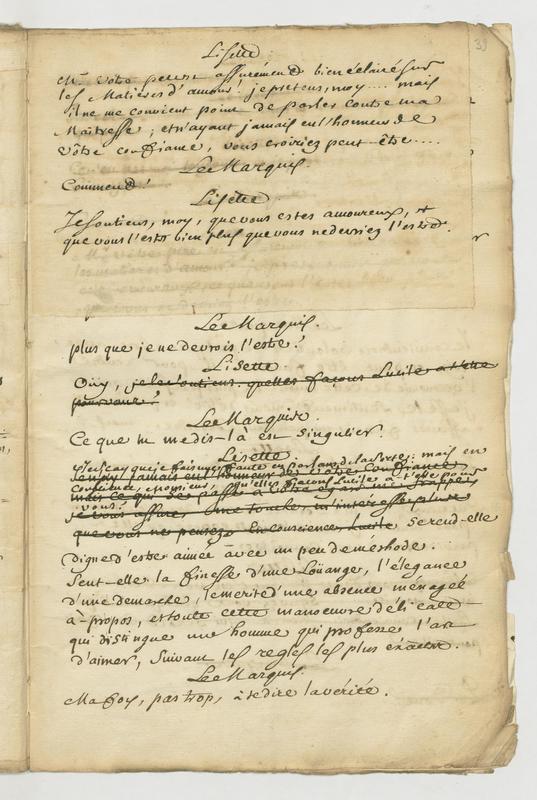 39
Lisette.
Mr. votre pareur assurément bien éclairé sur
les Matieres d'amour: je pretens, moy.... mais
il ne me convient point de parler contre ma
Maitresse; et n'ayant jamais eu l'honneur de
vôtre confiance, vous croiriez peut être....
Le Marquis.
Comment!
Lisette.
Je soutiens, moy, que vous estes amoureux, et
que vous l'estes bien plus que vous ne devriez l'estre.
Le Marquis.
plus que je ne devrois l'estre?
Lisette.
Ouy, je le soutiens. quelles façons Lucile a t'elle
pour vous?
Le Marquis.
Ce que tu me dis-là est singulier.
Lisette.
je sçay que je fais une faute en parlant de la sorte: mais en
n'ay jamais eu l'honneur de votre confiance
conscience, Monsieur, quelles façons Lucile a t'elle pour
mais ce qui se passe à votre égard
vous?
je vous assure, me touche, m'interesse plus
que vous ne pensez. En conscience, Lucile se rend-elle
digne d'estre aimée avec un peu de méthode.
Sent-elle la finesse d'une Loüange, l'élegance
d'une demarche, le merite d'une absence ménagée
à-propos, et toute cette manoeuvre délicate
qui distingue un homme qui professe l'art
d'aimer, Suivant les regles les plus éxactes.
Le Marquis.
Ma foy, pas trop, à te dire la vérité.